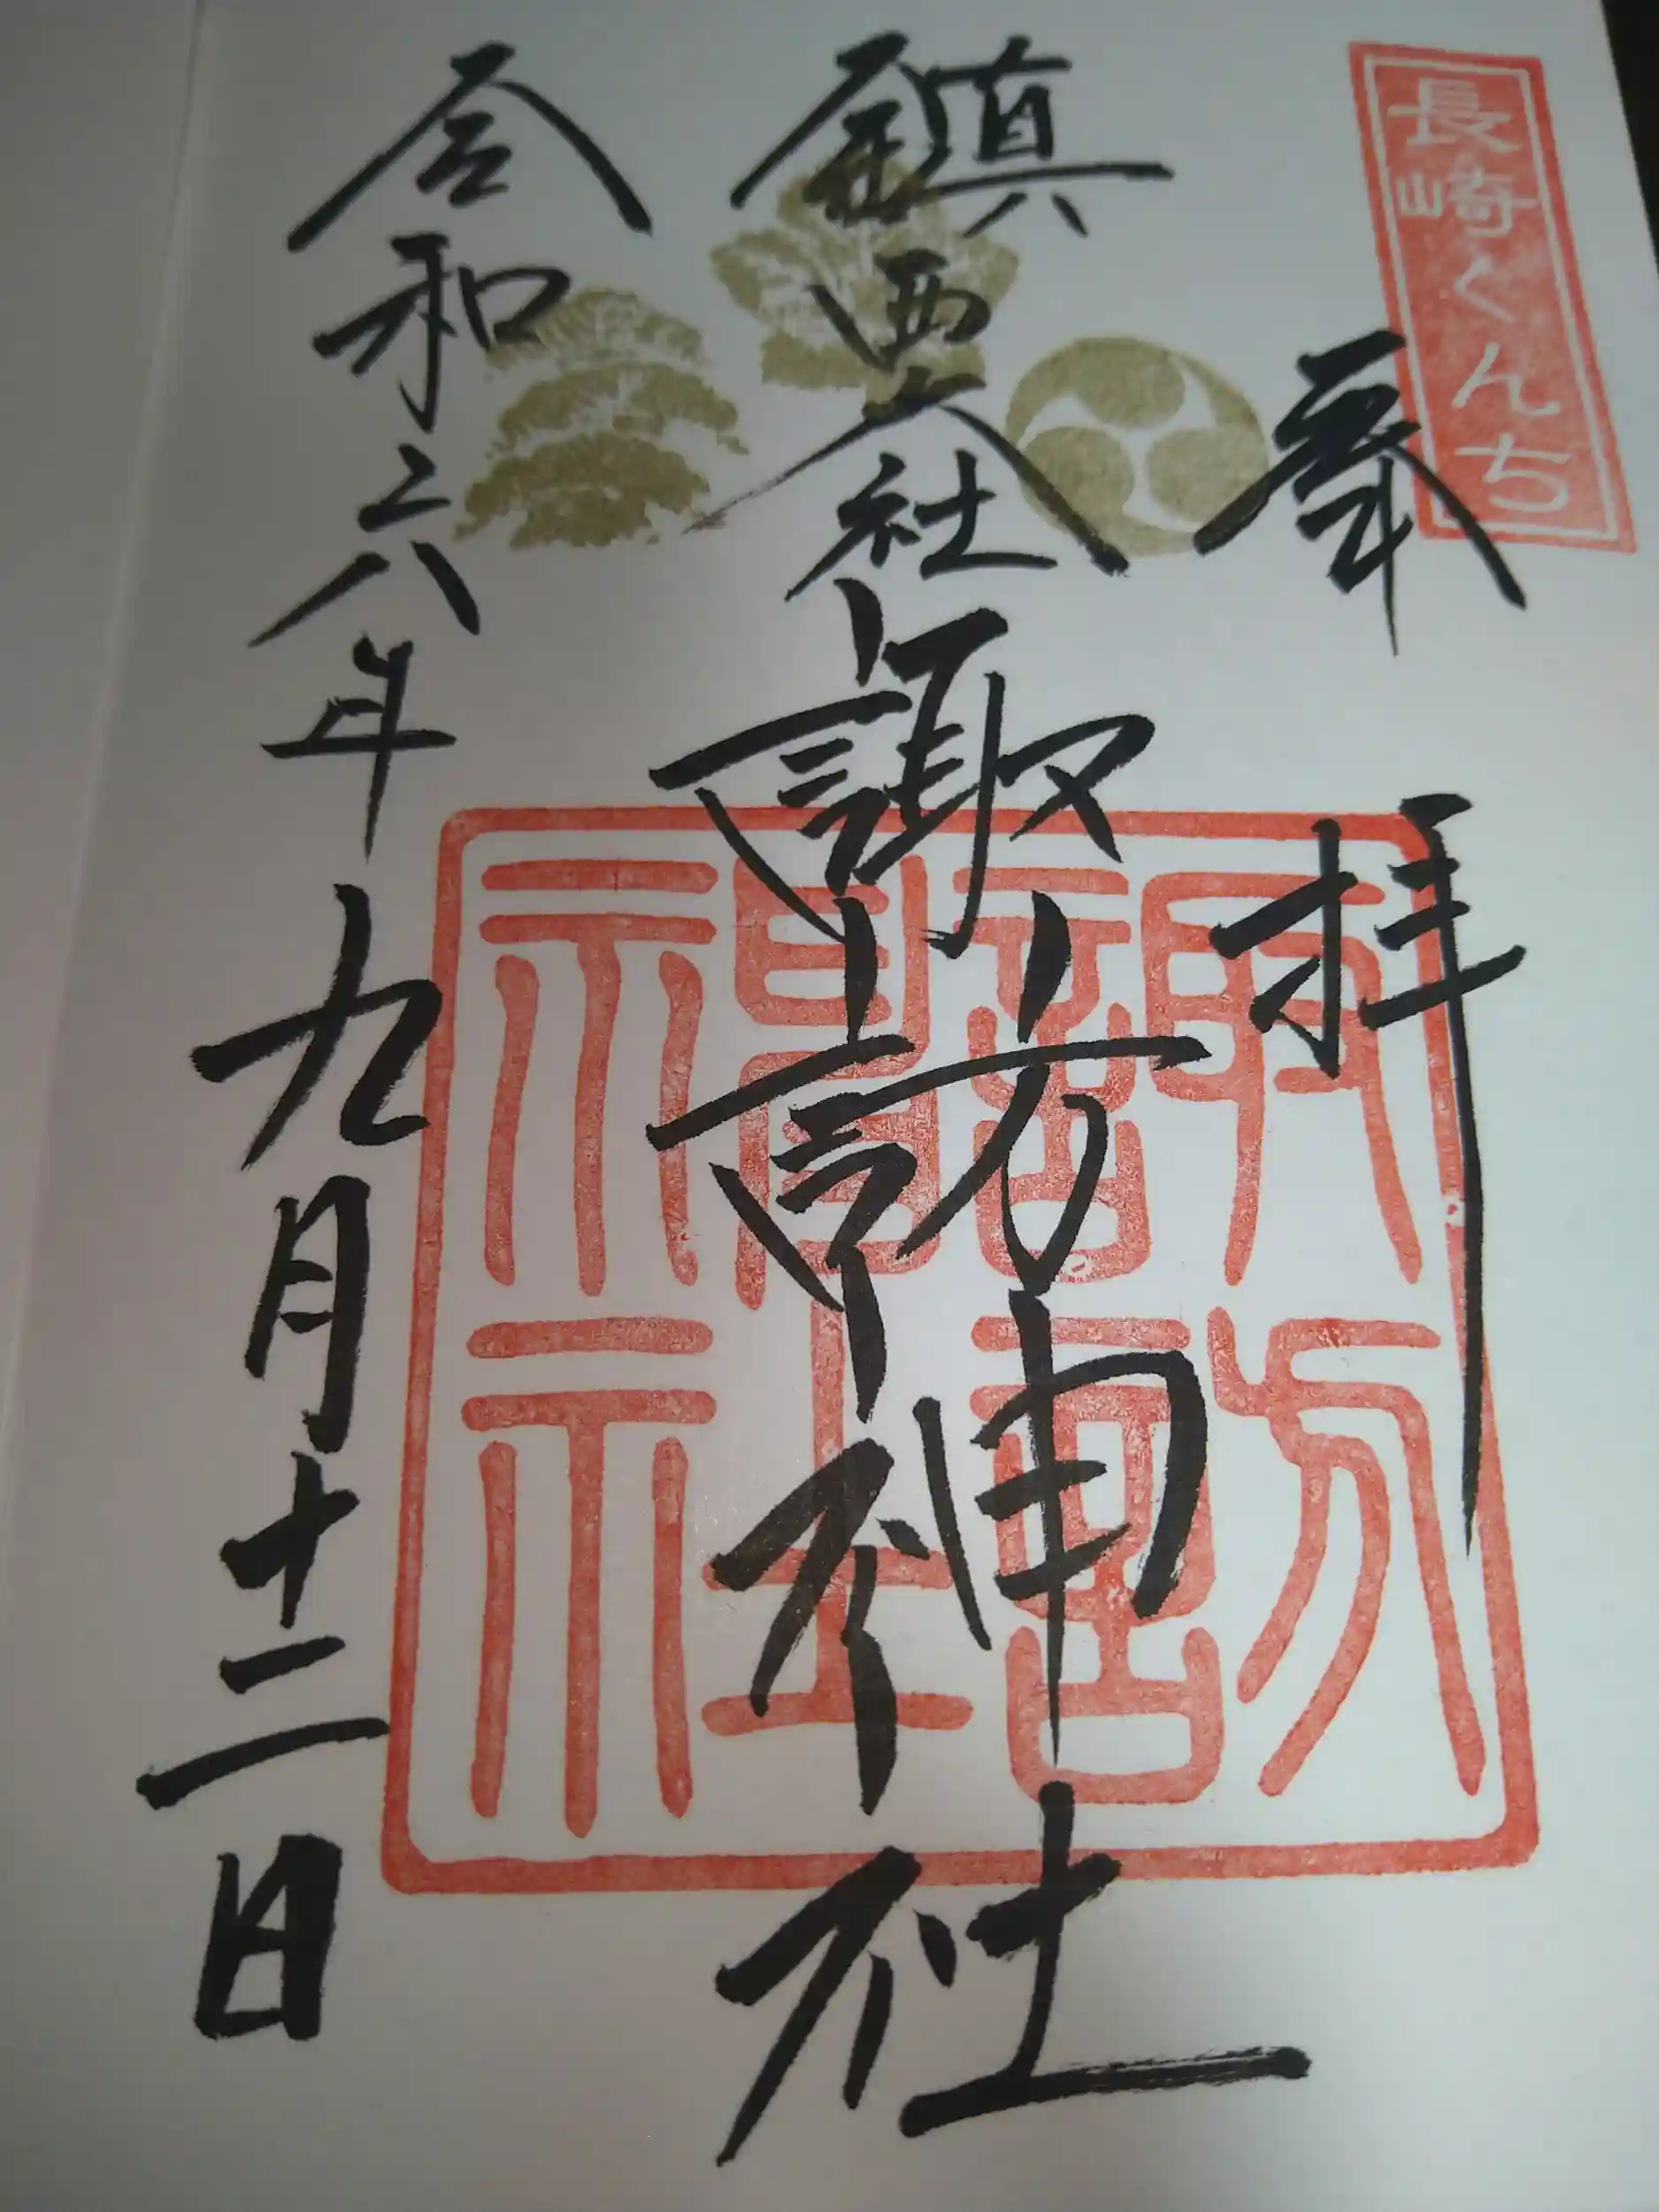 長崎くんち
奉拝
鎮西大社
諏訪神社
令和六年九月十二日
諏訪
神社